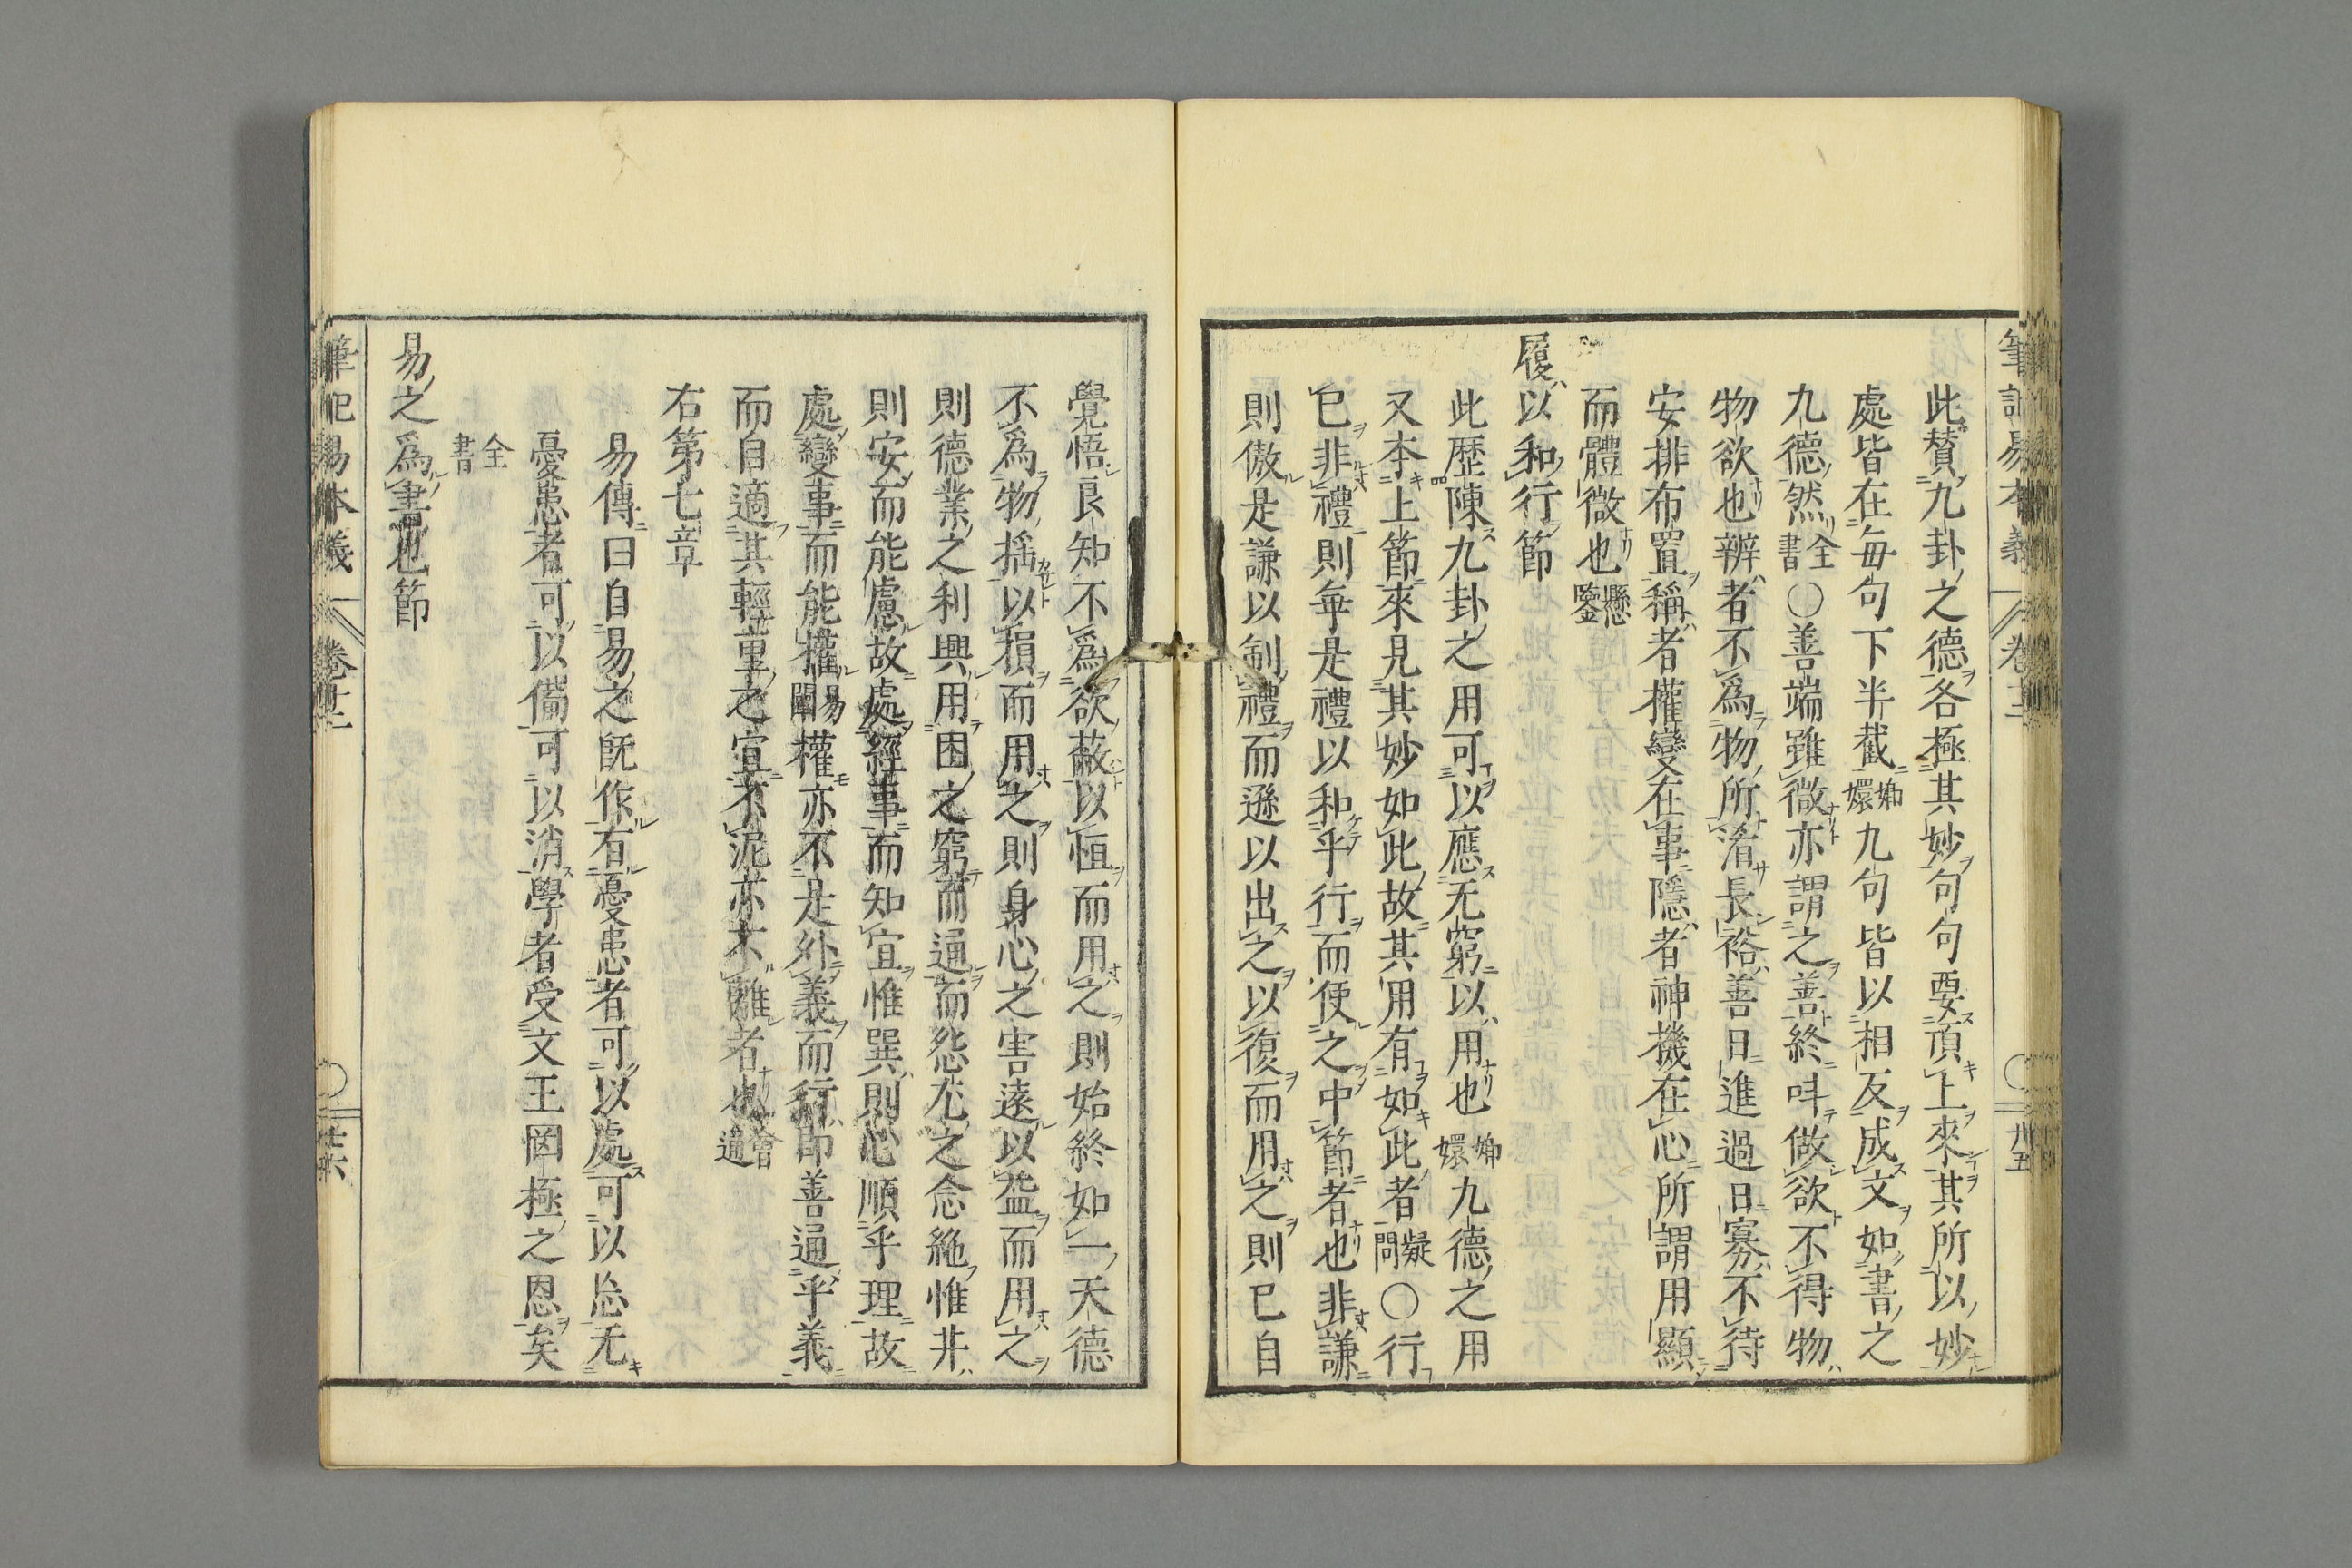 筆記易本義 卷十二 ○ 九五
此賛九卦之德各極其妙句句要頂上來其所以妙
處皆在毎句下半截嫏嬛九句皆以相反成文如書之
九德然全書○善端雖微亦謂之善終呌做欲不得物
物欲也辨者不爲物所淆長裕善日進過日寡不待
安排布置稱者權變在事隱者神機在心所謂用顯
而體微也懸鑒
履以和行節
此歴陳九卦之用可以應无窮以用也嫏嬛九德之用
又本上節來見其妙如此故其用有如此者疑問○行
已非禮則毎是禮以和乎行而使之中節者也非謙
則傲是謙以制禮而遜以出之以復而用之則已自
覺悟良知不爲欲蔽以恒而用之則始終如一天德
不爲物揺以損而用之則身心之害遠以益而用之
則德業之利興用困之窮而通而怨尤之念絶惟井
則安而能慮故處經事而知宜惟巽則心順乎理故
處變事而能權易闡權亦不是外義而行即善通乎義
而自適其輕重之宜不泥亦不離者也會通
右第七章
易傳曰自易之既作有憂患者可以處可以忘无
憂患者可以備可以消學者受文王罔極之恩矣
全書
易之爲書也節
筆記易本義 卷十二 ○ 廿六